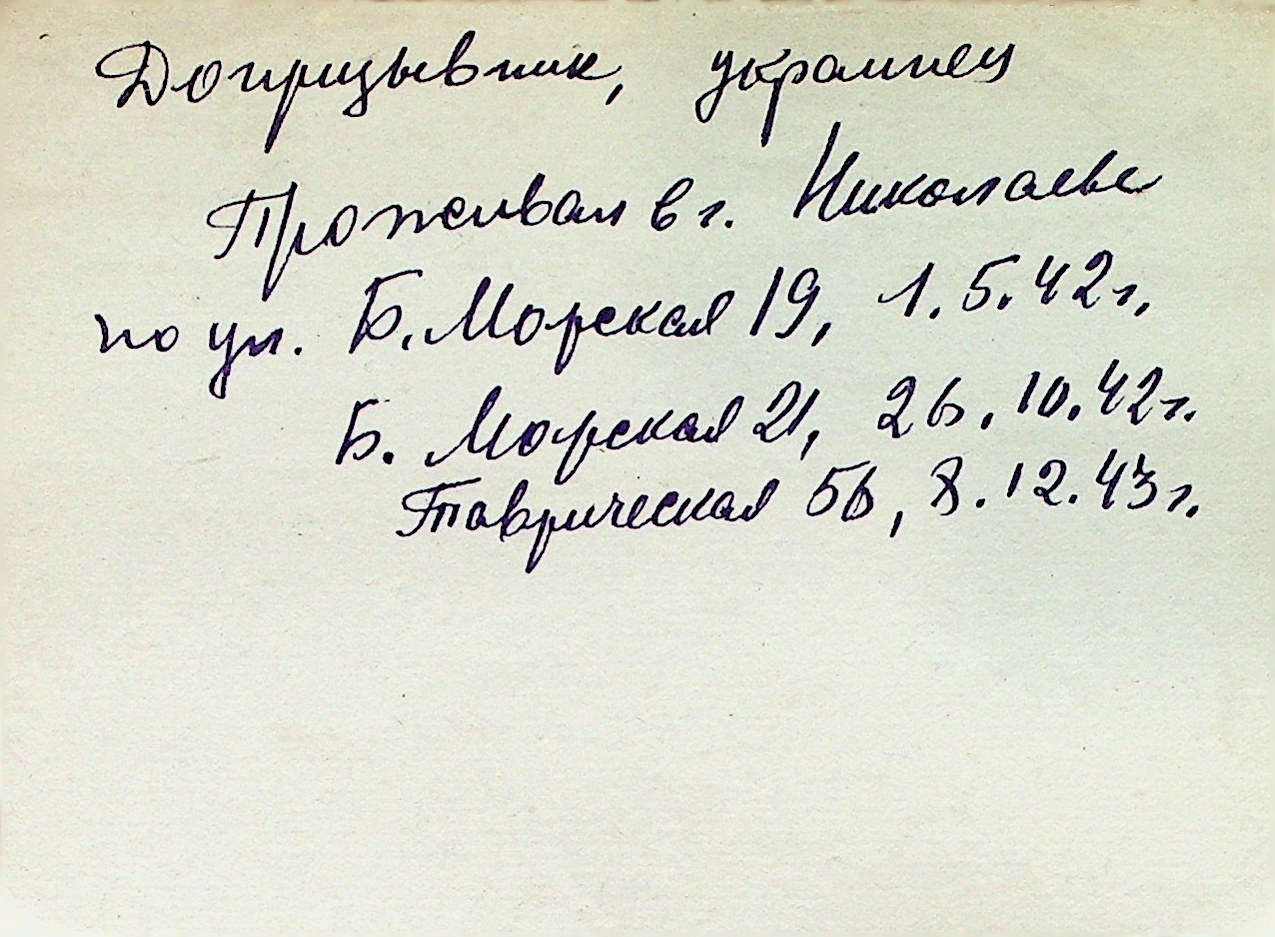 Допризывник, украинец
Проживал в г. Николаеве
по ул. Б. Морская 19, 1.5.42г.
Б. Морская 21, 26.10.42г.
Таврическая 56, 8.12.43г.